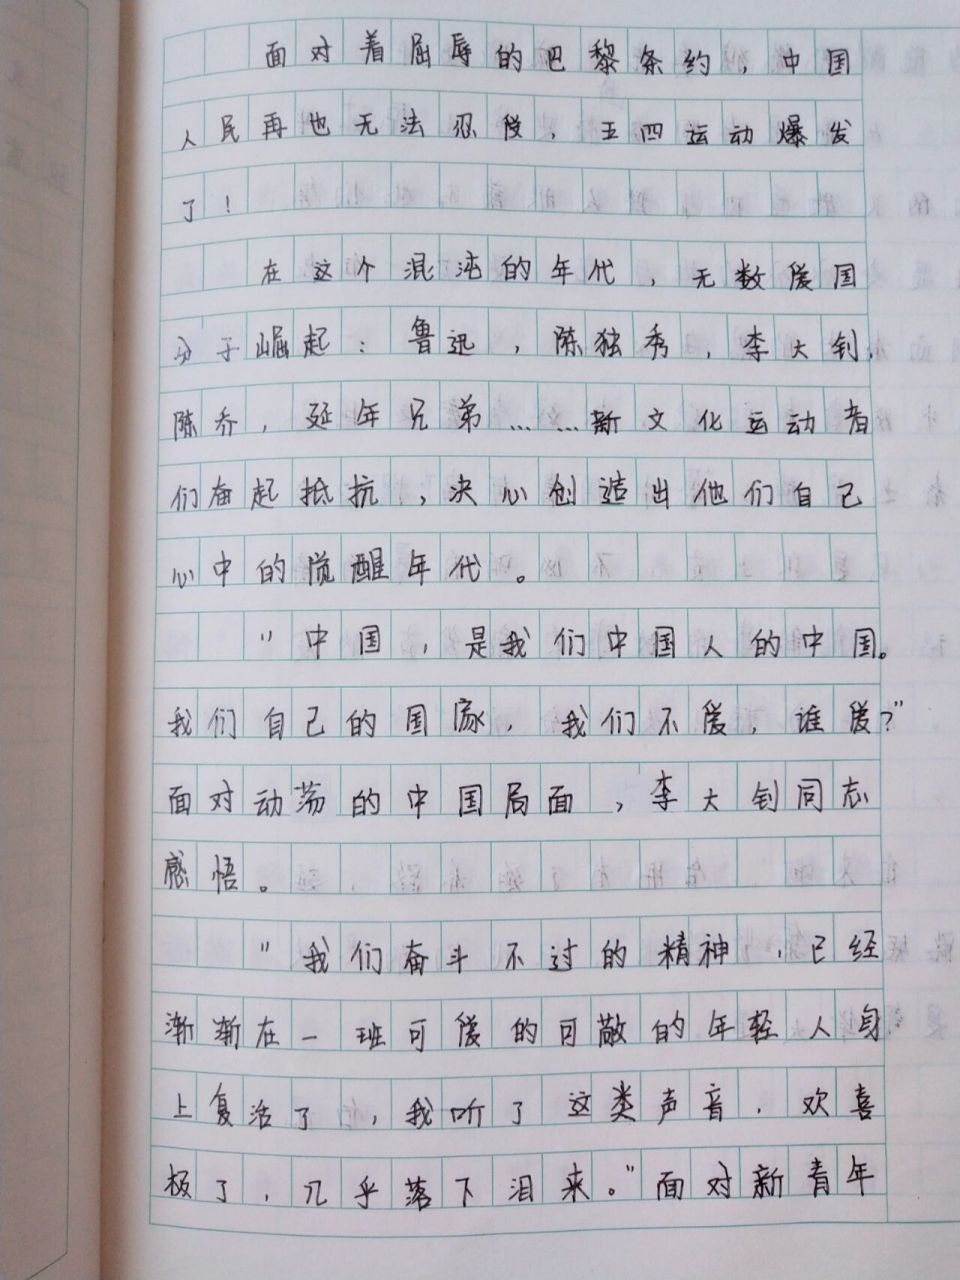 面对着屈辱的巴黎条约，中国
人民再也无法忍受，五四运动爆发
了！
在这个混沌的年代，无数爱国
分子崛起：鲁迅，陈独秀，李大钊，
陈乔，延年兄弟……新文化运动者
们奋起抵抗，决心创造出他们自己
心中的觉醒年代。
"中国，是我们中国人的中国。
我们自己的国家，我们不爱，谁爱？"
面对动荡的中国局面，李大钊同志
感悟。
"我们奋斗不过的精神，已经
渐渐在一班可爱的可敬的年轻人身
上复活了，我听了这类声音，欢喜
极了，几乎落下泪来。"面对新青年